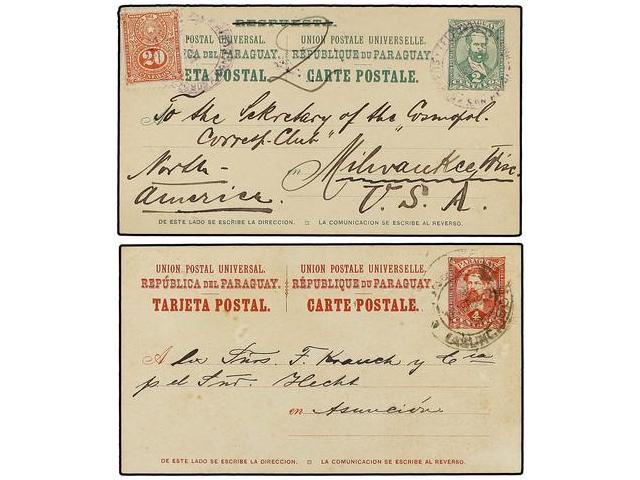 RESPUESTA
UNION POSTALE UNIVERSELLE.
CA DEL PARAGUAY. RÉPUBLIQUE DU PARAGUAY.
ETA POSTAL. CARTE POSTALE.
20
PARAGUAY
2
CENTAVOS
To the Sekretary of the "Cosmopol.
Corresp-Club"
North- en Milwaukee Wisc.
America. U. S. A.
DE ESTE LADO SE ESCRIBE LA DIRECCION. LA COMUNICACION SE ESCRIBE AL REVERSO.
UNION POSTAL UNIVERSAL. UNION POSTALE UNIVERSELLE.
REPÚBLICA DEL PARAGUAY. RÉPUBLIQUE DU PARAGUAY.
TARJETA POSTAL. CARTE POSTALE.
PARAGUAY
4
A los Sñres. F. Krauch y Cia
p el Sñr. Hecht
en Asunción.
DE ESTE LADO SE ESCRIBE LA DIRECCION. LA COMUNICACION SE ESCRIBE AL REVERSO.